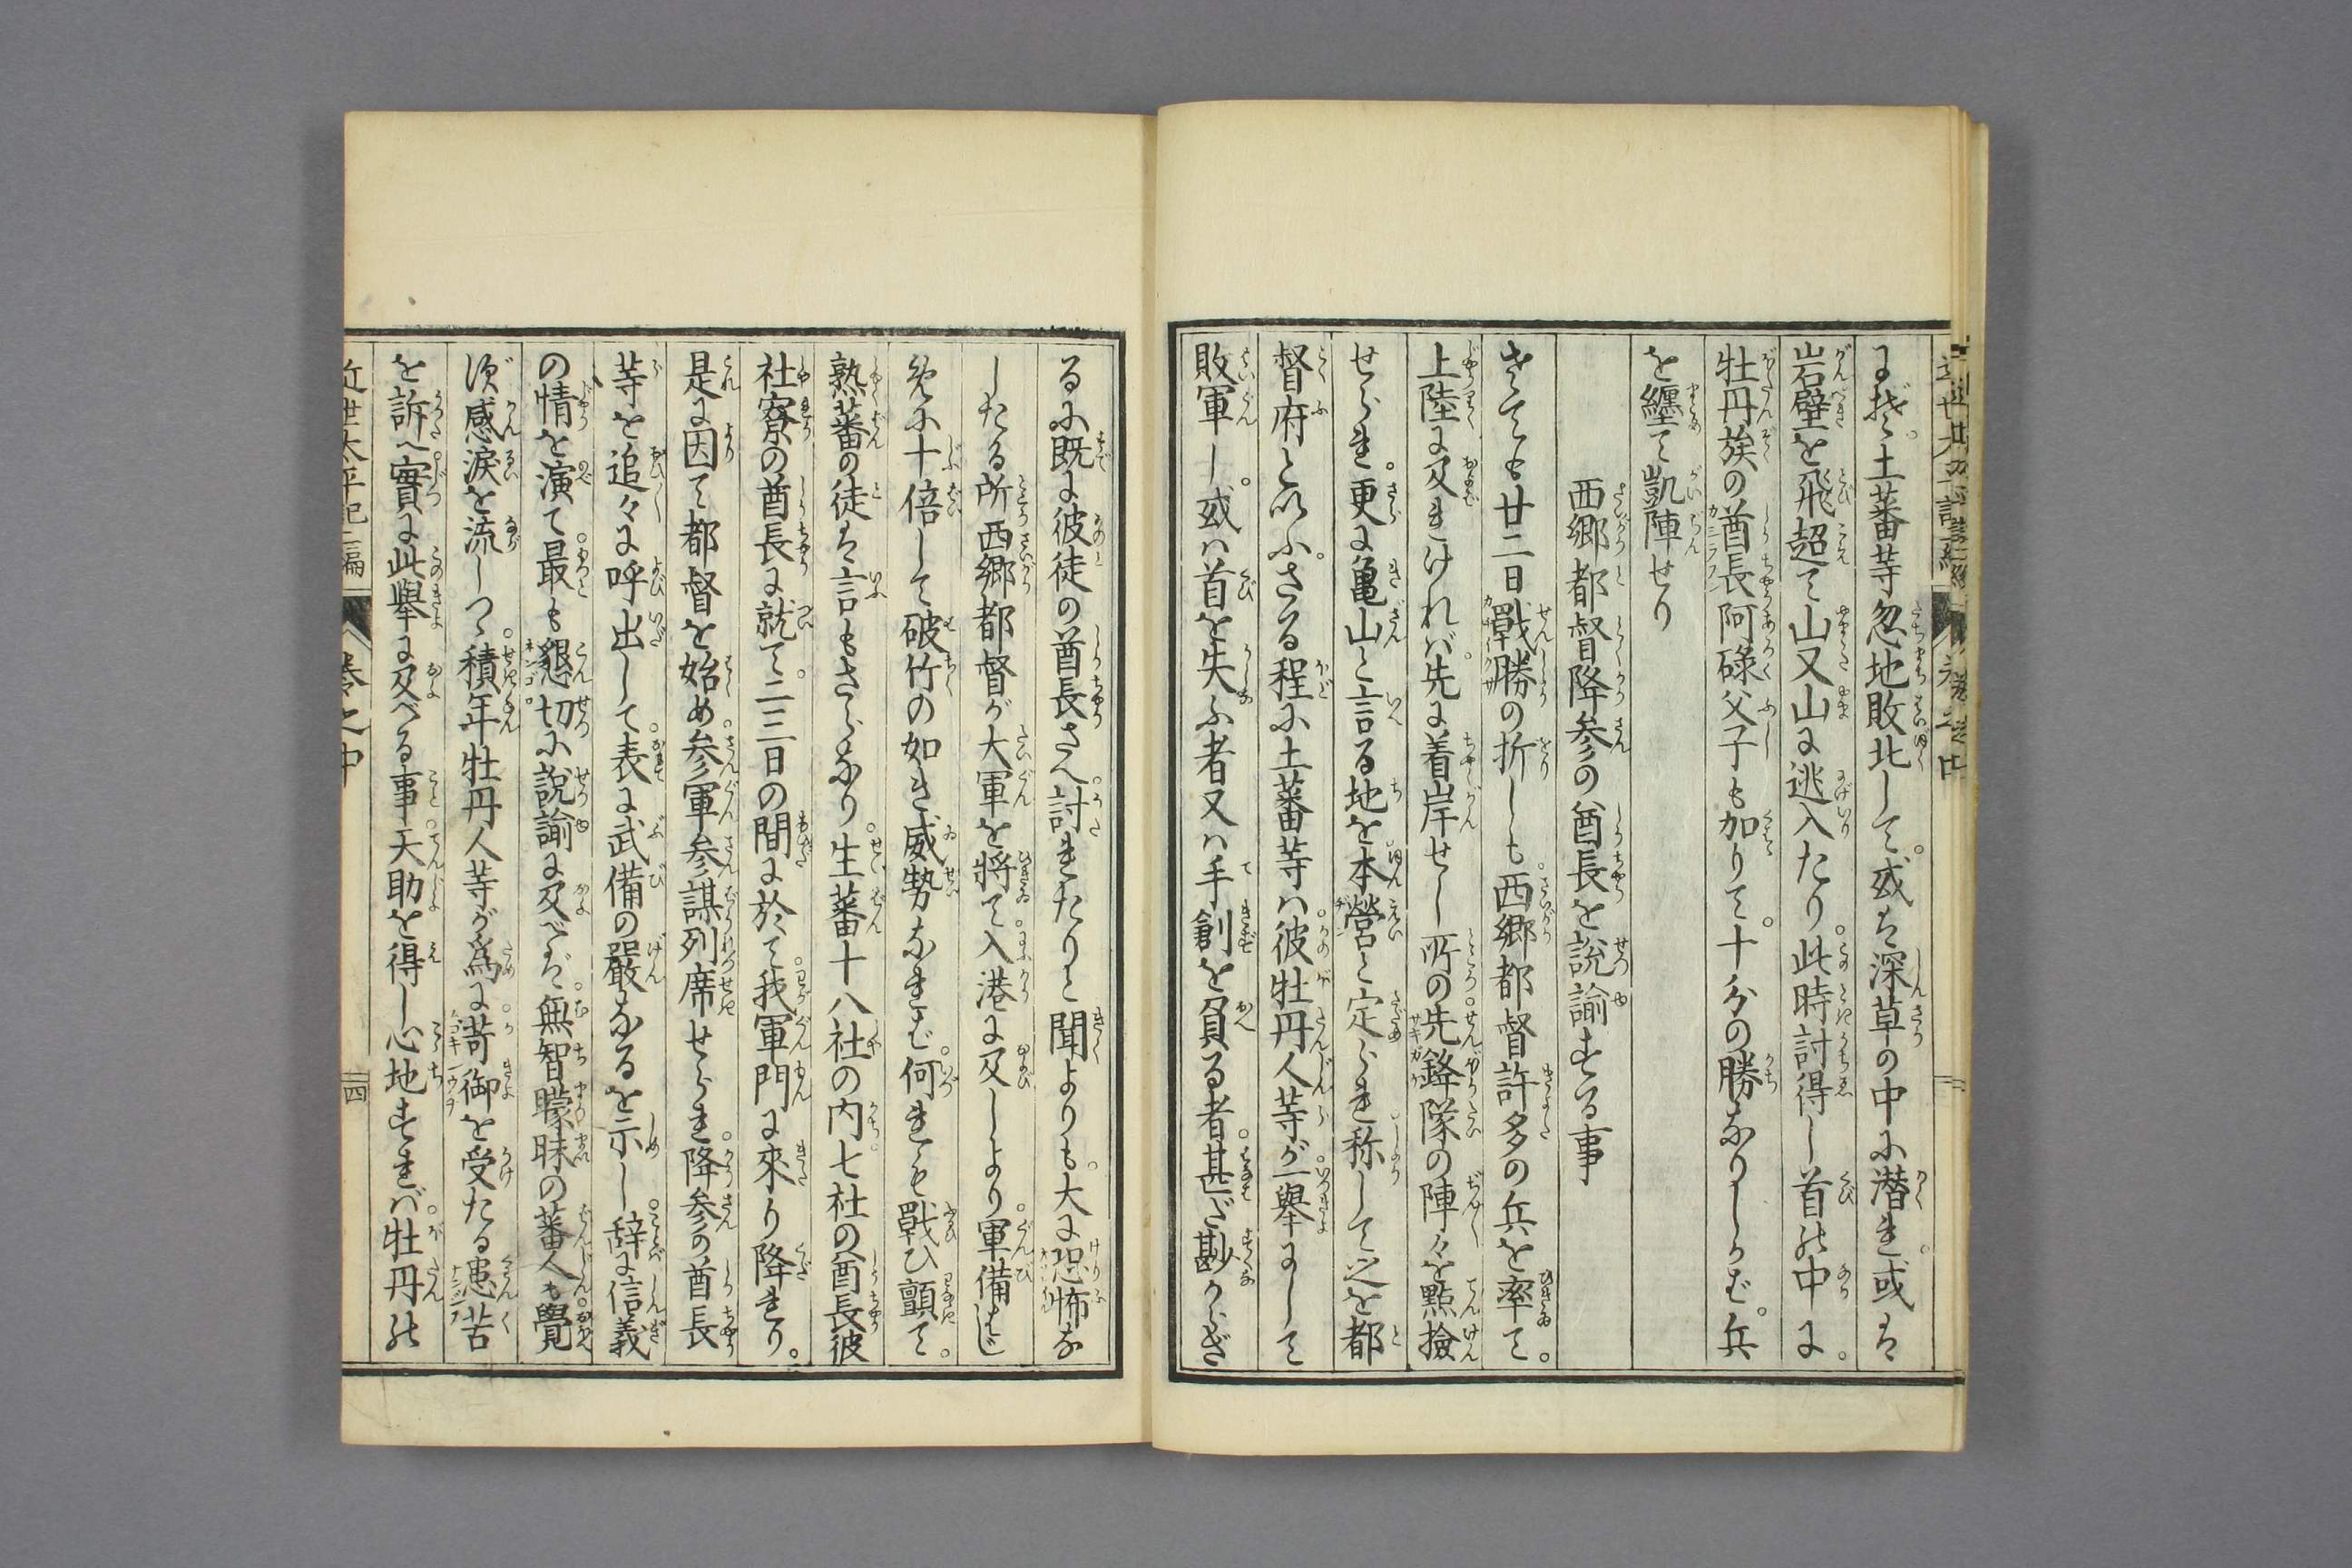 にぞ。土蕃等忽地敗北して。或は深草の中に潜れ。或は
岩壁を飛超て山又山に逃入たり。此時討得し首の中に。
牡丹族の酋長阿碌父子も加りて。十分の勝なりしかば。兵
を纏て凱陣せり
西郷都督降参の酋長を説諭する事
さても廿二日戰勝の折しも。西郷都督許多の兵を率て。
上陸に及れければ。先に着岸せし所の先鋒隊の陣々を點撿
せられ。更に亀山と言る地を本營と定られ称して之を都
督府と以ふ。さる程に土蕃等ハ。彼牡丹人等が一舉にして
敗軍し。或ハ首を失ふ者又ハ手創を負る者。甚だ尠からざ
るに既に彼徒の酋長さへ。討れたりと聞よりも。大に恐怖な
したる所西郷都督が大軍を將て。入港に及しより。軍備はじ
めに十倍して破竹の如き威勢なれば。何れも戰ひ顫て。
熟蕃の徒は言もさらなり。生蕃十八社の内。七社の酋長彼
社寮の酋長に就て。二三日の間に於て。我軍門に來り降れり。
是に因て都督を始め。参軍参謀列席せられ。降参の酋長
等を追々に呼出して。表に武備の嚴なるを示し。辞に信義
の情を演て。最も懇切に説諭に及べば。無智曚昧の蕃人も覺
ず感涙を流しつゝ。積年牡丹人等が為に。苛御を受たる患苦
を訴へ。實に此舉に及べる事。天助を得し心地すれば。牡丹の
近世太平記二編 巻之中 四